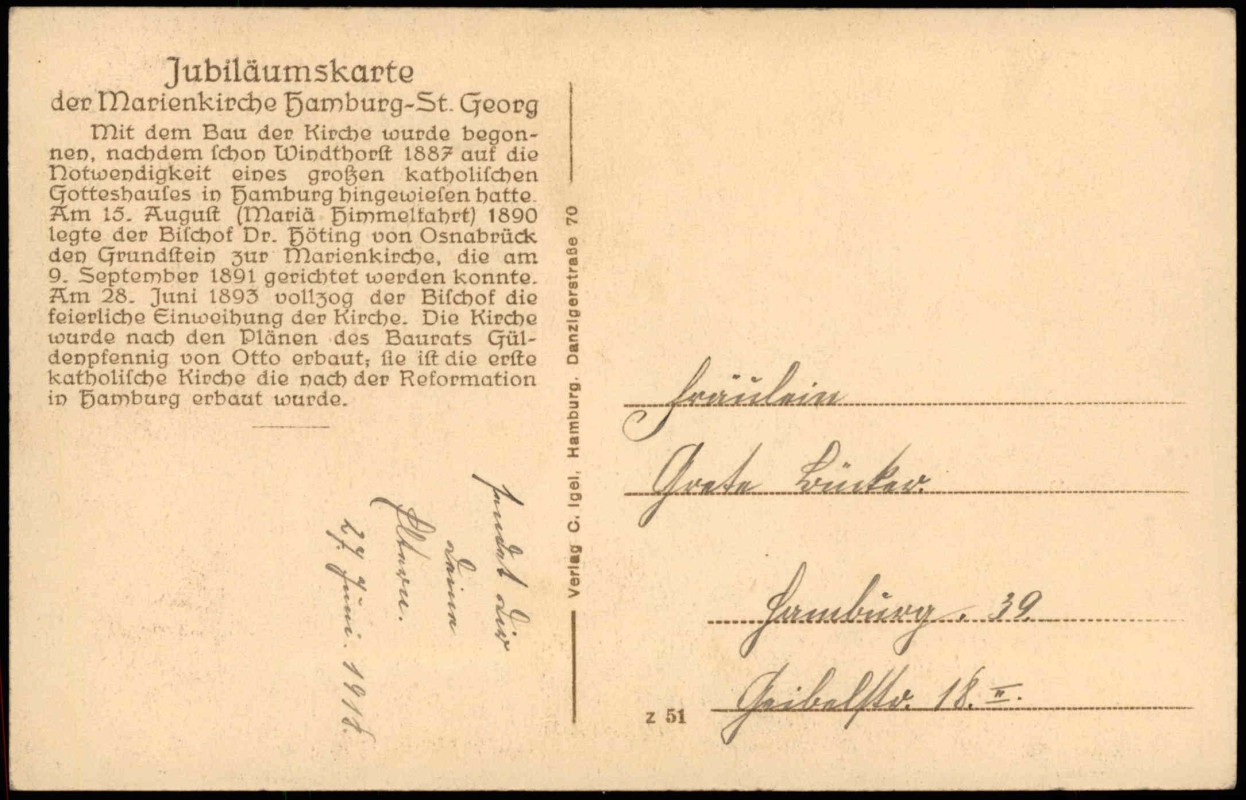 Jubiläumskarte
der Marienkirche Hamburg-St. Georg
Mit dem Bau der Kirche wurde begon-
nen, nachdem ſchon Windthorſt 1887 auf die
Notwendigkeit eines großen katholiſchen
Gotteshauſes in Hamburg hingewieſen hatte.
Am 15. Auguſt (Mariä Himmelfahrt) 1890
legte der Biſchof Dr. Höting von Osnabrück
den Grundſtein zur Marienkirche, die am
9. September 1891 gerichtet werden konnte.
Am 28. Juni 1893 vollzog der Biſchof die
feierliche Einweihung der Kirche. Die Kirche
wurde nach den Plänen des Baurats Gül-
denpfennig von Otto erbaut; ſie iſt die erſte
katholiſche Kirche die nach der Reformation
in Hamburg erbaut wurde.
sendet Dir
Deine
Eltern.
27. Juni. 1918.
Verlag C. Igel, Hamburg, Danzigerstraße 70
z 51
Fräulein
Grete Bücker.
Hamburg. 39.
Geibelstr. 18. II.